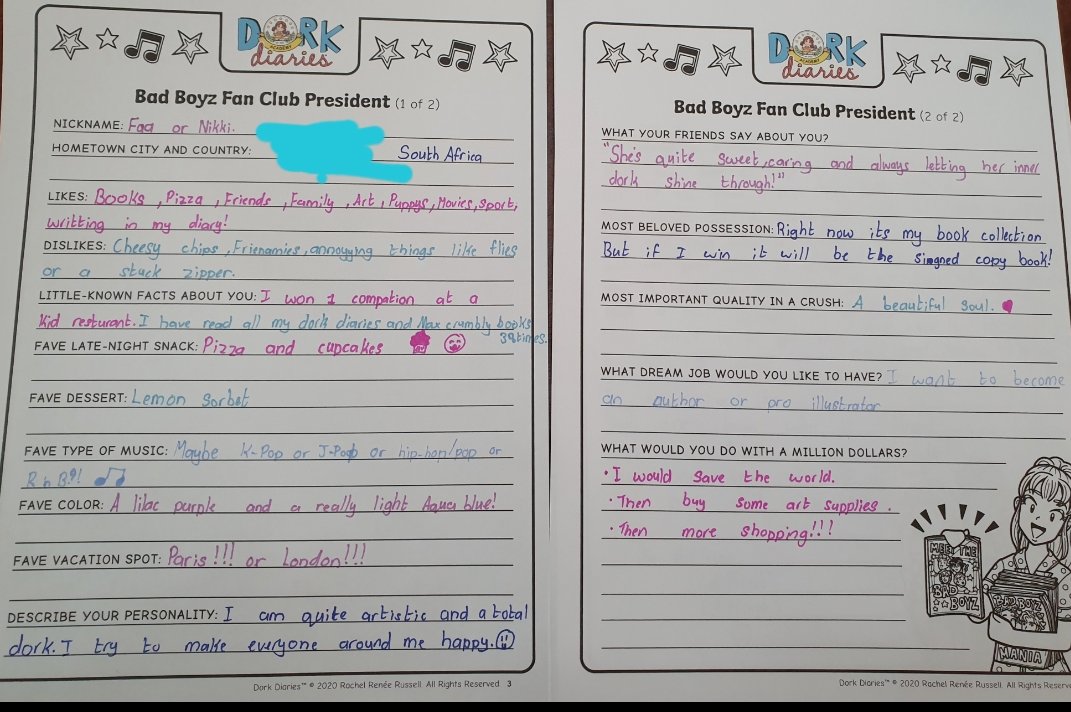 DORK
diaries
Bad Boyz Fan Club President (1 of 2)
NICKNAME: Faa or Nikki.
HOMETOWN CITY AND COUNTRY: South Africa
LIKES: Books, Pizza, Friends, Family, Art, Puppys, Movies, Sport,
writting in my diary!
DISLIKES: Cheesy chips, Frienamies, annoyying things like flies
or a stuck zipper.
LITTLE-KNOWN FACTS ABOUT YOU: I won 1 compation at a
Kid resturant. I have read all my dork diaries and Max crumbly books
38times.
FAVE LATE-NIGHT SNACK: Pizza and cupcakes
FAVE DESSERT: Lemon Sorbet
FAVE TYPE OF MUSIC: Maybe K-Pop or J-Pop or hip-hop/pop or
R n B?!
FAVE COLOR: A lilac purple and a really light Aqua blue!
FAVE VACATION SPOT: Paris!!! or London!!!
DESCRIBE YOUR PERSONALITY: I am quite artistic and a total
dork. I try to make everyone around me happy.
Dork Diaries™ © 2020 Rachel Renée Russell. All Rights Reserved. 3
DORK
diaries
Bad Boyz Fan Club President (2 of 2)
WHAT YOUR FRIENDS SAY ABOUT YOU?
"She's quite sweet, caring and always letting her inner
dork shine through!"
MOST BELOVED POSSESSION: Right now its my book collection
But if I win it will be the Simgned copy book!
MOST IMPORTANT QUALITY IN A CRUSH: A beautiful soul.
WHAT DREAM JOB WOULD YOU LIKE TO HAVE? I want to become
an author or pro illustrator
WHAT WOULD YOU DO WITH A MILLION DOLLARS?
• I would save the world.
• Then buy some art supplies.
• Then more shopping!!!
MEET THE
BAD
BOYZ
BAD BOYZ
MANIA
Dork Diaries™ © 2020 Rachel Renée Russell. All Rights Reserv